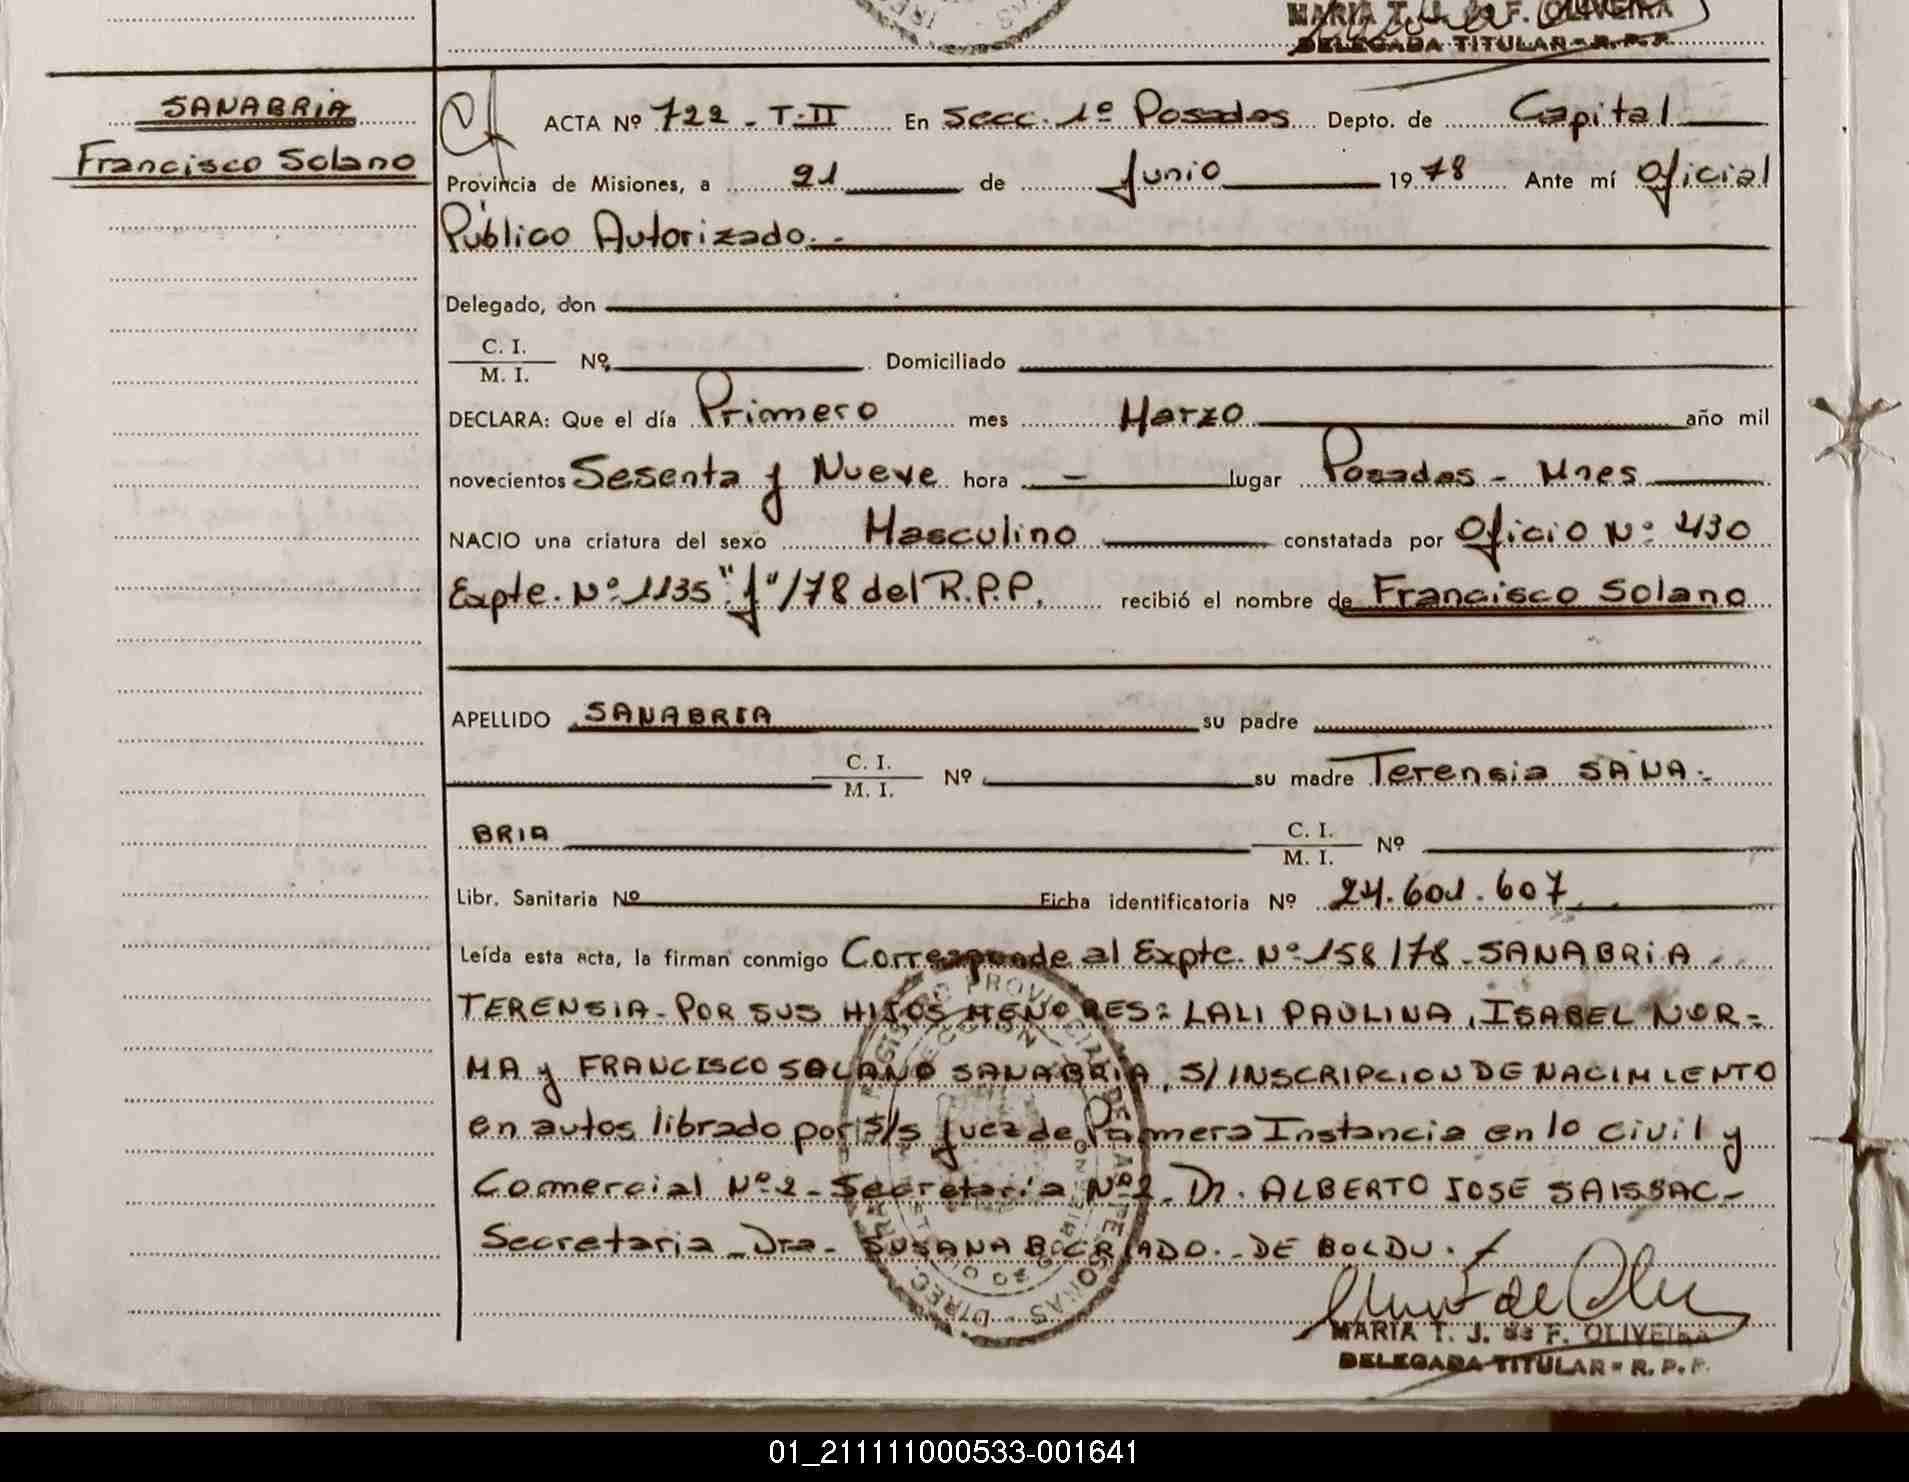 MARIA T. J. de F. OLIVEIRA
DELEGADA TITULAR - R. P. P.
SANABRIA
Francisco Solano
ACTA Nº 722 - T. II En Secc. 1º Posadas Depto. de Capital
Provincia de Misiones, a 21 de Junio 1978 Ante mí Oficial
Público Autorizado. -
Delegado, don
C. I.
M. I. Nº Domiciliado
DECLARA: Que el día Primero mes Marzo año mil
novecientos Sesenta y Nueve hora — lugar Posadas - Mnes
NACIO una criatura del sexo Masculino constatada por Oficio Nº 430
Expte. Nº 1135 "J"/78 del R.P.P. recibió el nombre de Francisco Solano
APELLIDO SANABRIA su padre
C. I.
M. I. Nº su madre Terensia SANA-
BRIA C. I.
M. I. Nº
Libr. Sanitaria Nº Ficha identificatoria Nº 24.601.607
Leída esta acta, la firman conmigo Corresponde al Expte. Nº 158/78 - SANABRIA
TERENSIA - POR SUS HIJOS MENORES: LALI PAULINA, ISABEL NOR-
MA y FRANCISCO SOLANO SANABRIA, S/INSCRIPCION DE NACIMIENTO
en autos librado por S/s Juez de Primera Instancia en lo civil y
Comercial Nº 2 - Secretaría Nº 2 - Dr. ALBERTO JOSE SAISSAC -
Secretaria - Dra. SUSANA B. CRIADO. - DE BOLDU.
MARIA T. J. de F. OLIVEIRA
DELEGADA TITULAR - R. P. P.
01_21111000533-001641